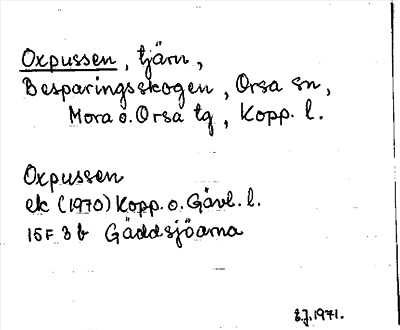 Oxpussen, tjärn,
Besparingsskogen, Orsa sn,
Mora o. Orsa tg, Kopp. l.
Oxpussen
ek (1970) Kopp. o. Gävl. l.
15F 3b Gäddsjöarna
1971.